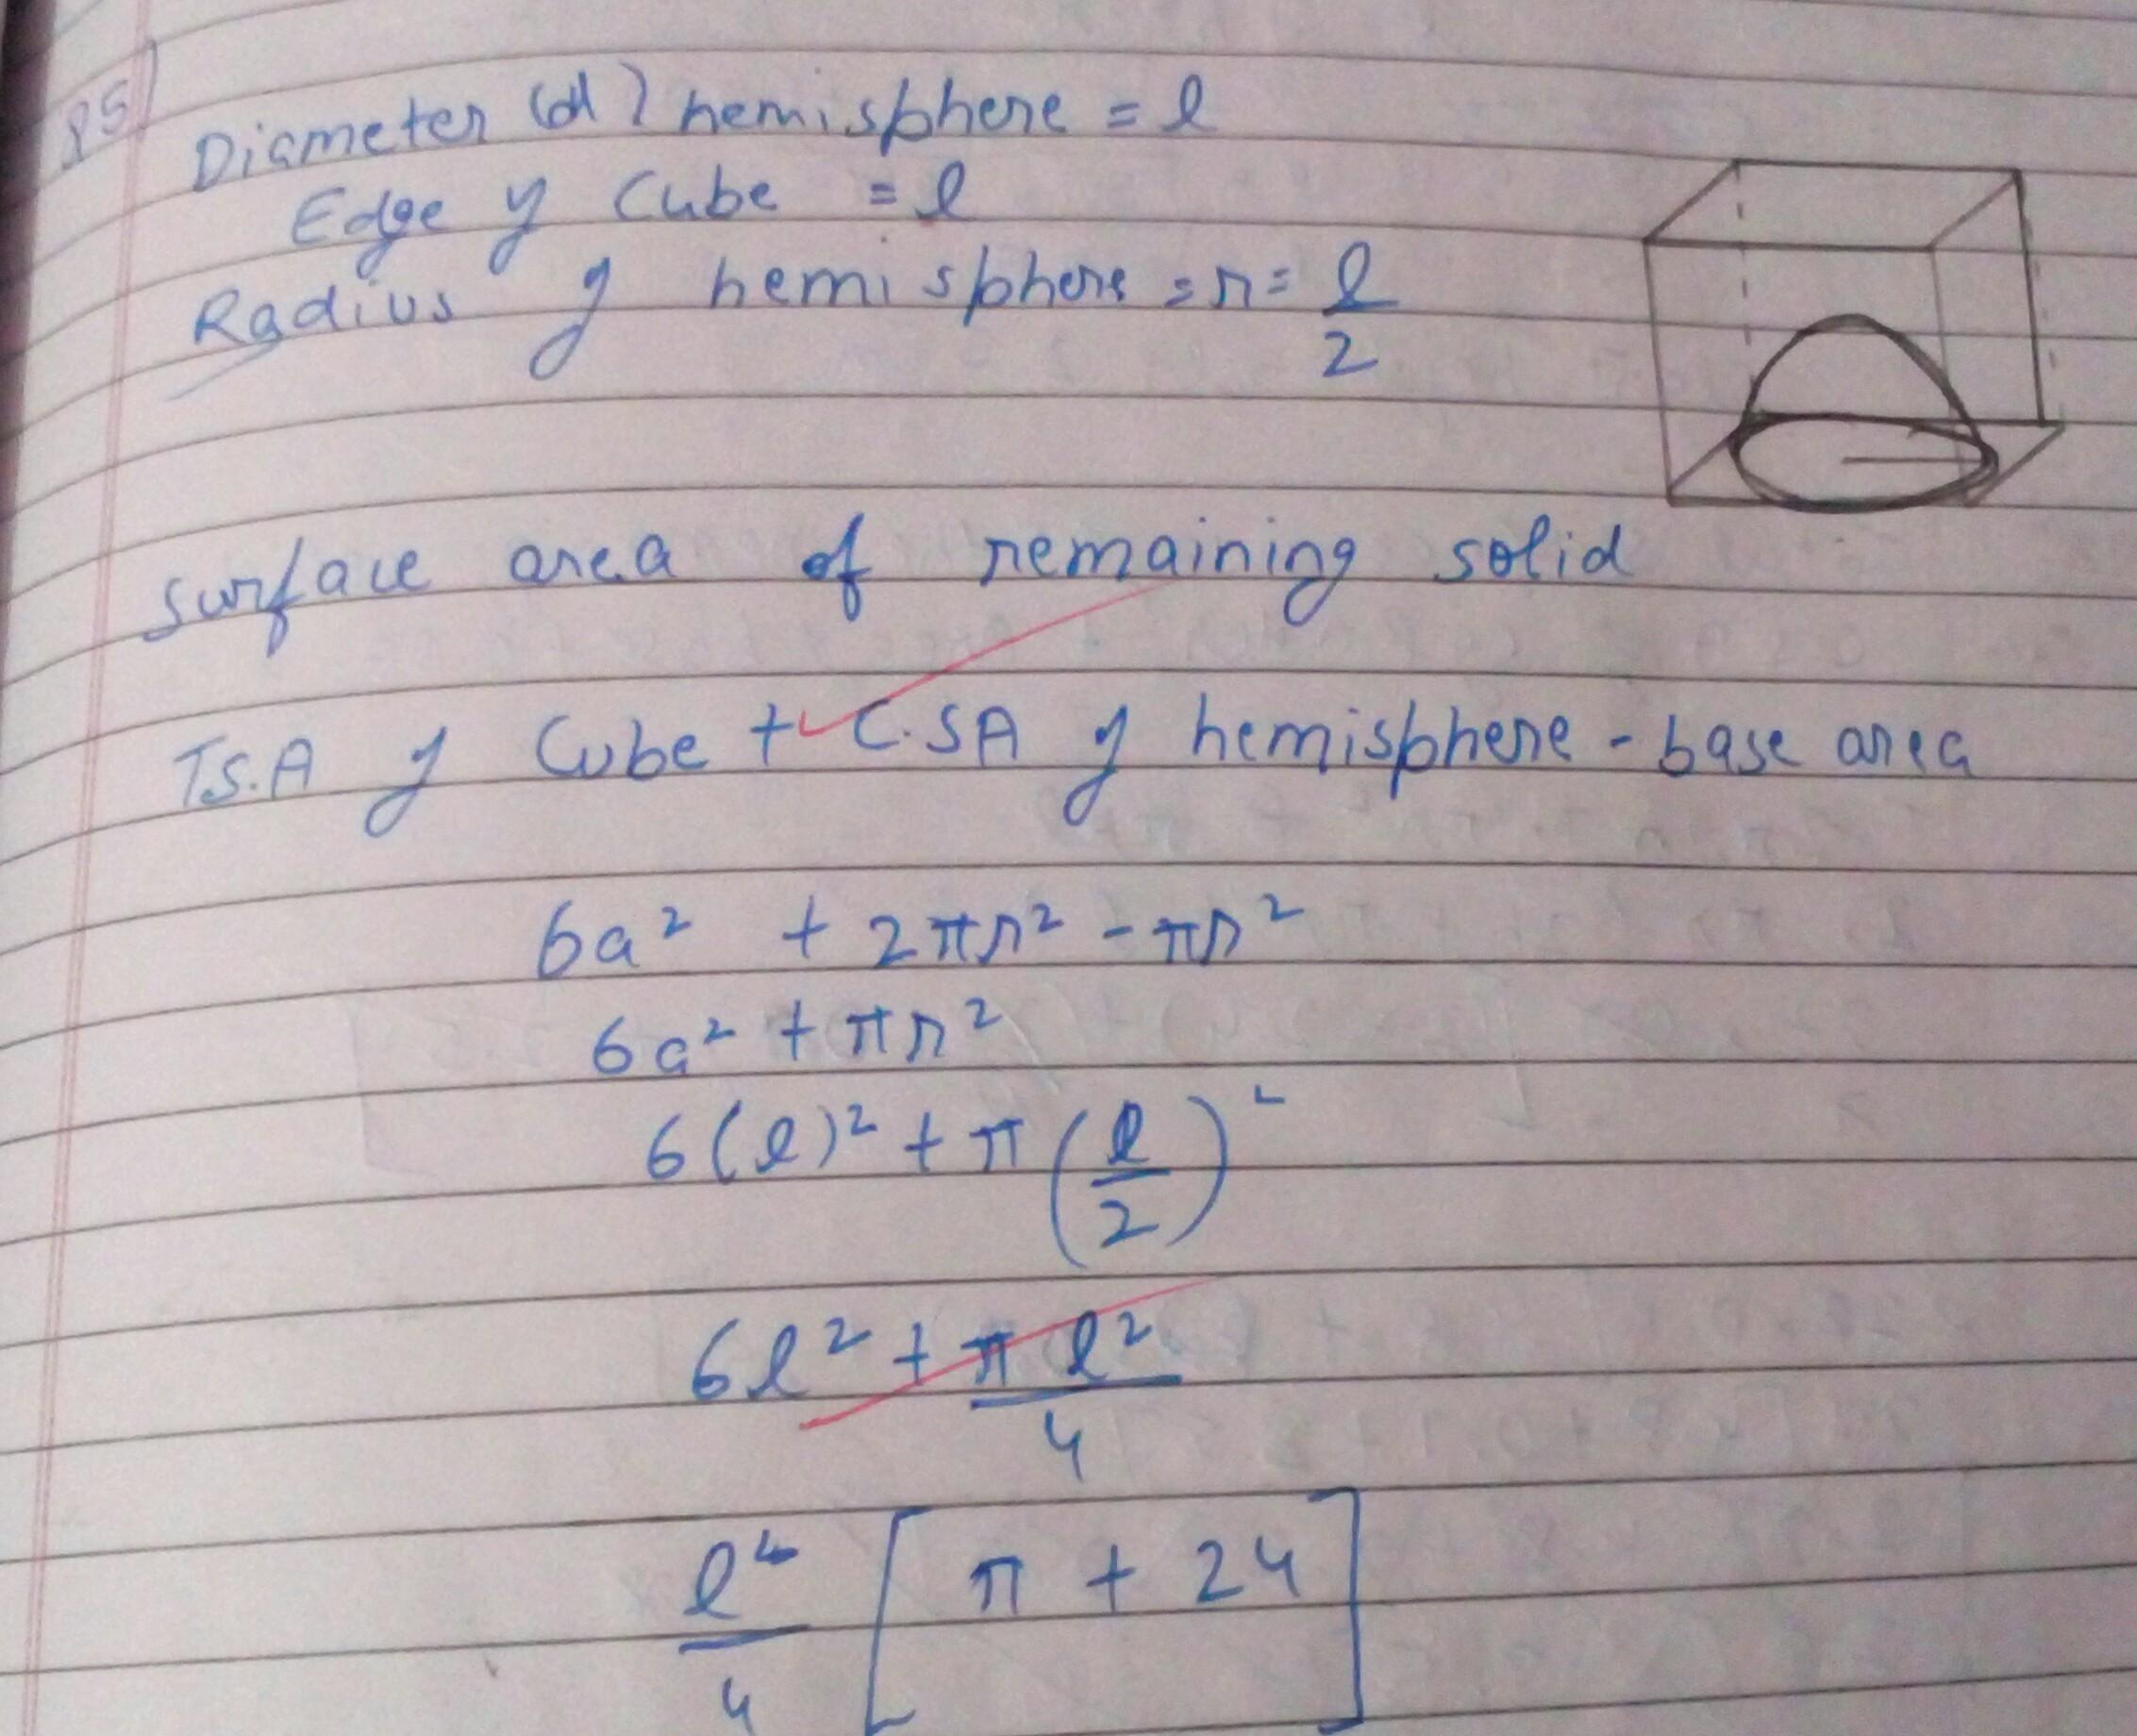 85)
Diameter (d) hemisphere = l
Edge of Cube = l
Radius of hemisphere = r = l/2
surface area of remaining solid
T.S.A of Cube + C.SA of hemisphere - base area
6a² + 2πr² - πr²
6a² + πr²
6(l)² + π(l/2)²
6l² + πl²/4
l²/4 [π + 24]